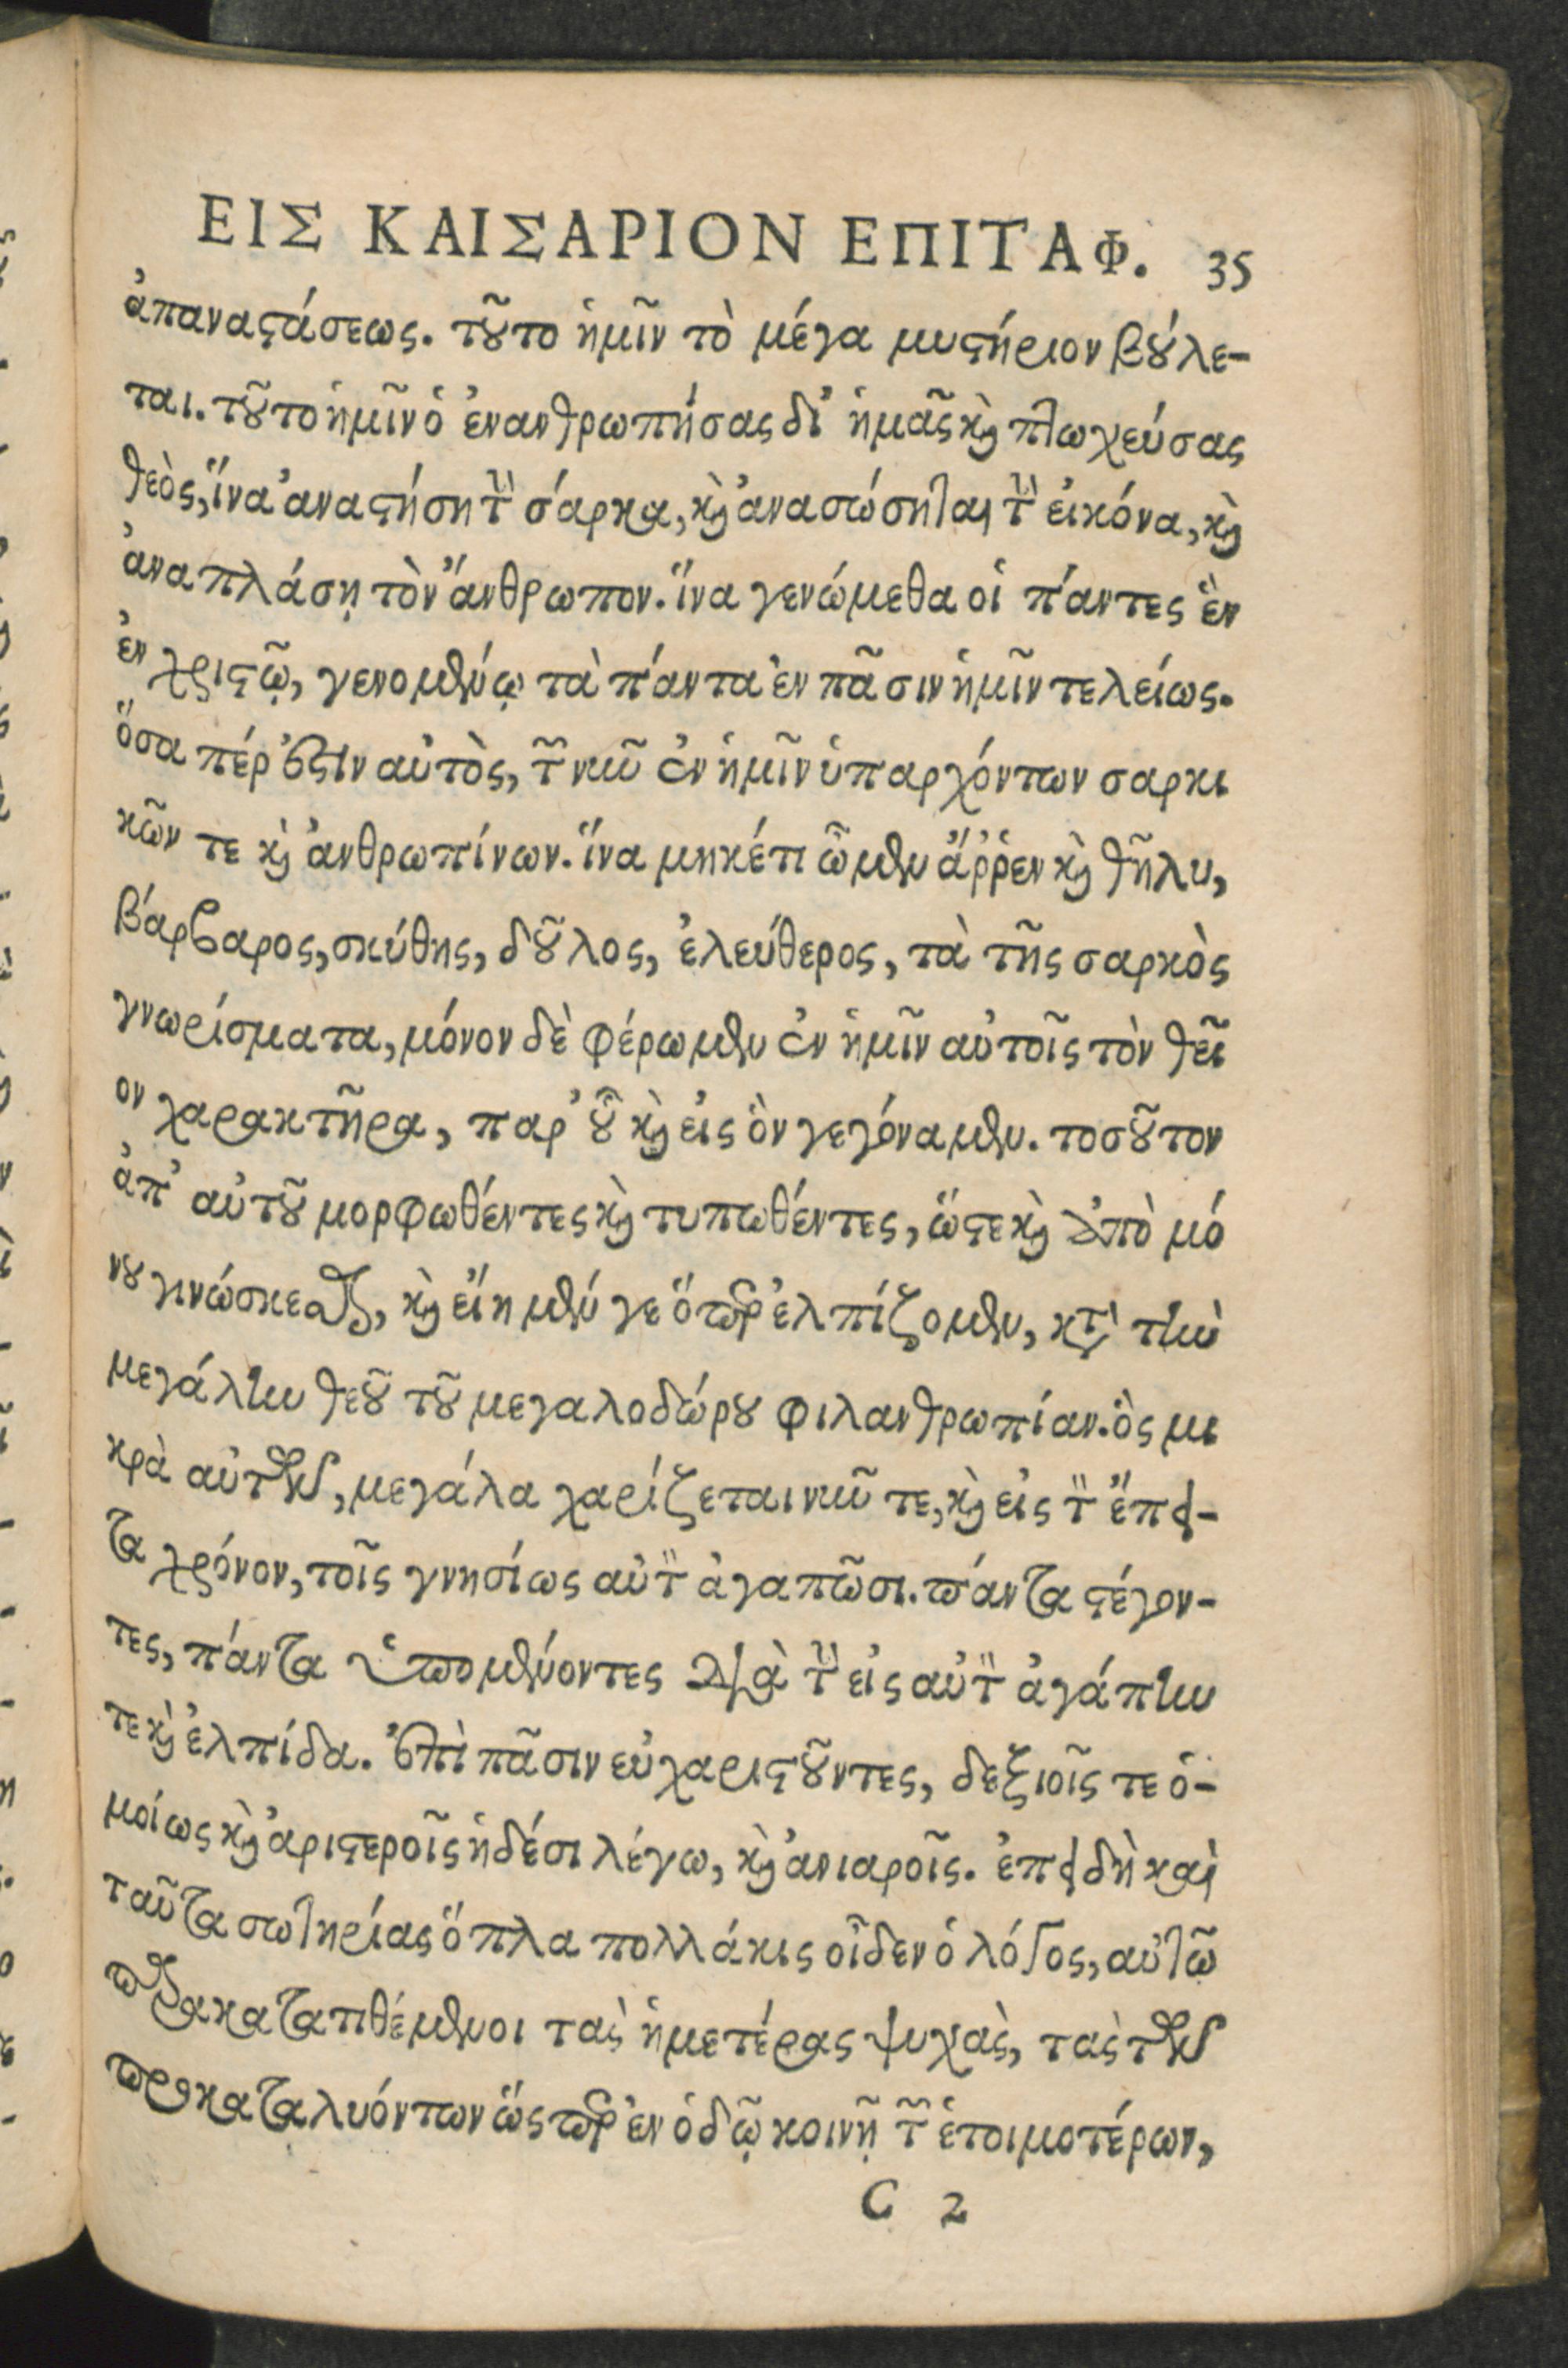 ΕΙΣ ΚΑΙΣΑΡΙΟΝ ΕΠΙΤΑΦ. 35
ἀπαναϛάσεως. τȣ͂το ἡμῖν τὸ μέγα μυϛήριον βȣ́λε-
ται. τȣ͂το ἡμῖν ὁ ἐνανθρωπήσας δι' ἡμᾶς ϗ̀ πτωχεύσας
θεὸς, ἵνα ἀναϛήση τὴν σάρκα, ϗ̀ ἀνασώσηται τὴν εἰκόνα, ϗ̀
ἀναπλάσῃ τὸν ἄνθρωπον. ἵνα γενώμεθα οἱ πάντες ἓν
ἐν χριϛῷ, γενομένῳ τὰ πάντα ἐν πᾶσιν ἡμῖν τελείως.
ὅσα πέρ ἐϛιν αὐτὸς, τῶν νῦν ἐν ἡμῖν ὑπαρχόντων σαρκι
κῶν τε ϗ̀ ἀνθρωπίνων. ἵνα μηκέτι ὦμεν ἄῤῥεν ϗ̀ θῆλυ,
βάρβαρος, σκύθης, δȣ͂λος, ἐλεύθερος, τὰ τῆς σαρκὸς
γνωρίσματα, μόνον δὲ φέρωμεν ἐν ἡμῖν αὐτοῖς τὸν θεῖ
ον χαρακτῆρα, παρ' ȣ͗͂ ϗ̀ εἰς ὃν γεγόναμεν. τοσȣ͂τον
ἀπ' αὐτȣ͂ μορφωθέντες ϗ̀ τυπωθέντες, ὥϛε ϗ̀ ἀπὸ μό
νȣ γινώσκεσθαι, ϗ̀ εἴημέν γε ὅπερ ἐλπίζομεν, κατὰ τὴν
μεγάλην θεȣ͂ τȣ͂ μεγαλοδώρȣ φιλανθρωπίαν. ὃς μι
κρὰ αὐτῶν, μεγάλα χαρίζεται νῦν τε, ϗ̀ εἰς τὸν ἔπει-
τα χρόνον, τοῖς γνησίως αὐτὸν ἀγαπῶσι. πάντα ϛέγον-
τες, πάντα ὑπομένοντες διὰ τὴν εἰς αὐτὸν ἀγάπην
τε ϗ̀ ἐλπίδα. ἐπὶ πᾶσιν εὐχαριϛȣ͂ντες, δεξιοῖς τε ὁ-
μοίως ϗ̀ ἀριϛεροῖς ἡδέσι λέγω, ϗ̀ ἀνιαροῖς. ἐπειδὴ καὶ
ταῦτα σωτηρίας ὅπλα πολλάκις οἶδεν ὁ λόγος, αὐτῶ
παρακατατιθέμενοι τὰς ἡμετέρας ψυχὰς, τὰς τῶν
προκαταλυόντων ὥσπερ ἐν ὁδῷ κοινῇ τῶν ἑτοιμοτέρων,
C 2